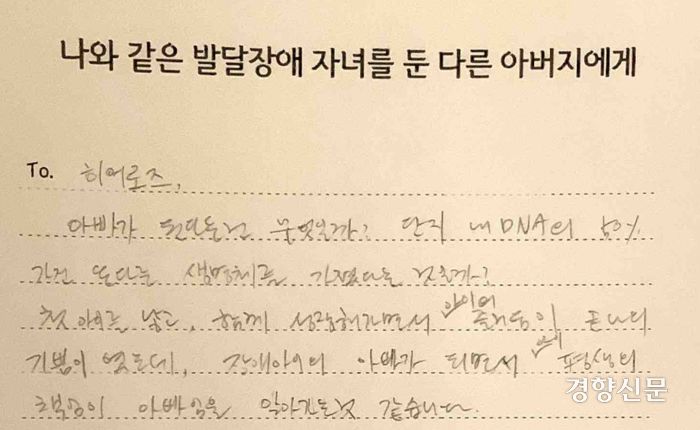 나와 같은 발달장애 자녀를 둔 다른 아버지에게
To. 히어로즈,
아빠가 된다는건 무엇일까? 단지 내 DNA의 50%
가진 또다른 생명체를 가졌다는 것일까?
첫 아이를 낳고, 함께 성장해가면서 아이의 존재 나의
기쁨이 였는데, 장애아이의 아빠가 되면서 평생의
책임이 아빠임을 알아가는것 같습니다.
경향신문